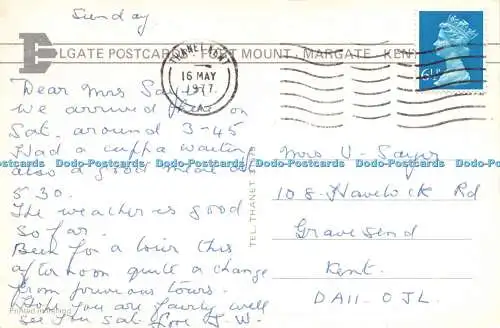 Sunday
ELGATE POSTCARDS MOUNT, MARGATE, KENT
THANET KENT
16 MAY
1977
A
6½P
Dear Mrs Sayer
We arrived here on
Sat. around 3-45
Had a cuppa waiting
also a good meal at
5.30.
The weather is good
so far.
Been for a tour this
afternoon quite a change
from previous tours.
Hope you are fairly well
See you Sat. Love J. W.
TEL. THANET
Printed in
Mrs V. Sayer
108 Havelock Rd
Gravesend
Kent.
DA11-0JL.
Dodo-Postcards Dodo-Postcards Dodo-Postcards Dodo-Postcards Dodo-Postcards